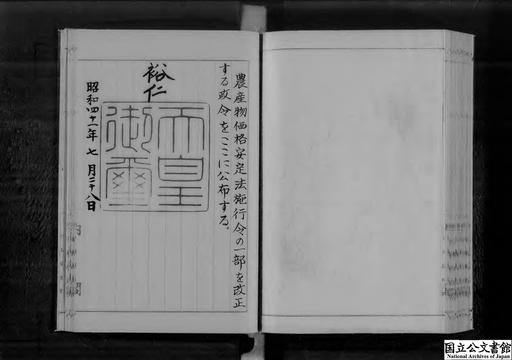 農産物価格安定法施行令の一部を改正
する政令をここに公布する。
裕仁
天皇
御璽
昭和四十一年七月二十八日
内閣
国立公文書館
National Archives of Japan